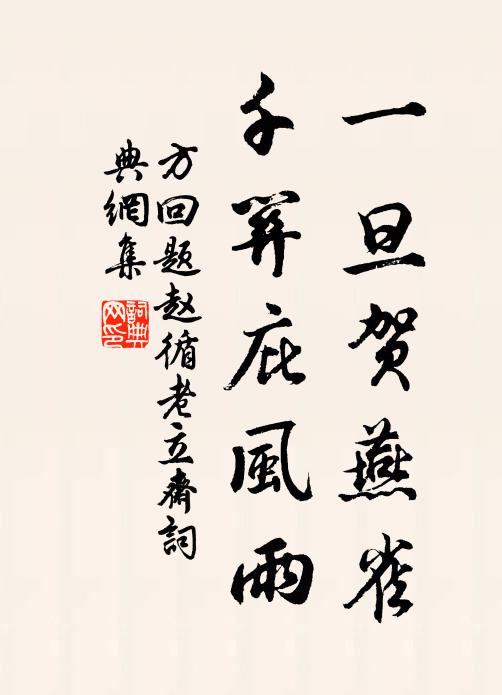 一旦贺燕雀
千算庇風雨
方回题赵循老立齋詞
典網集
詞典
网印